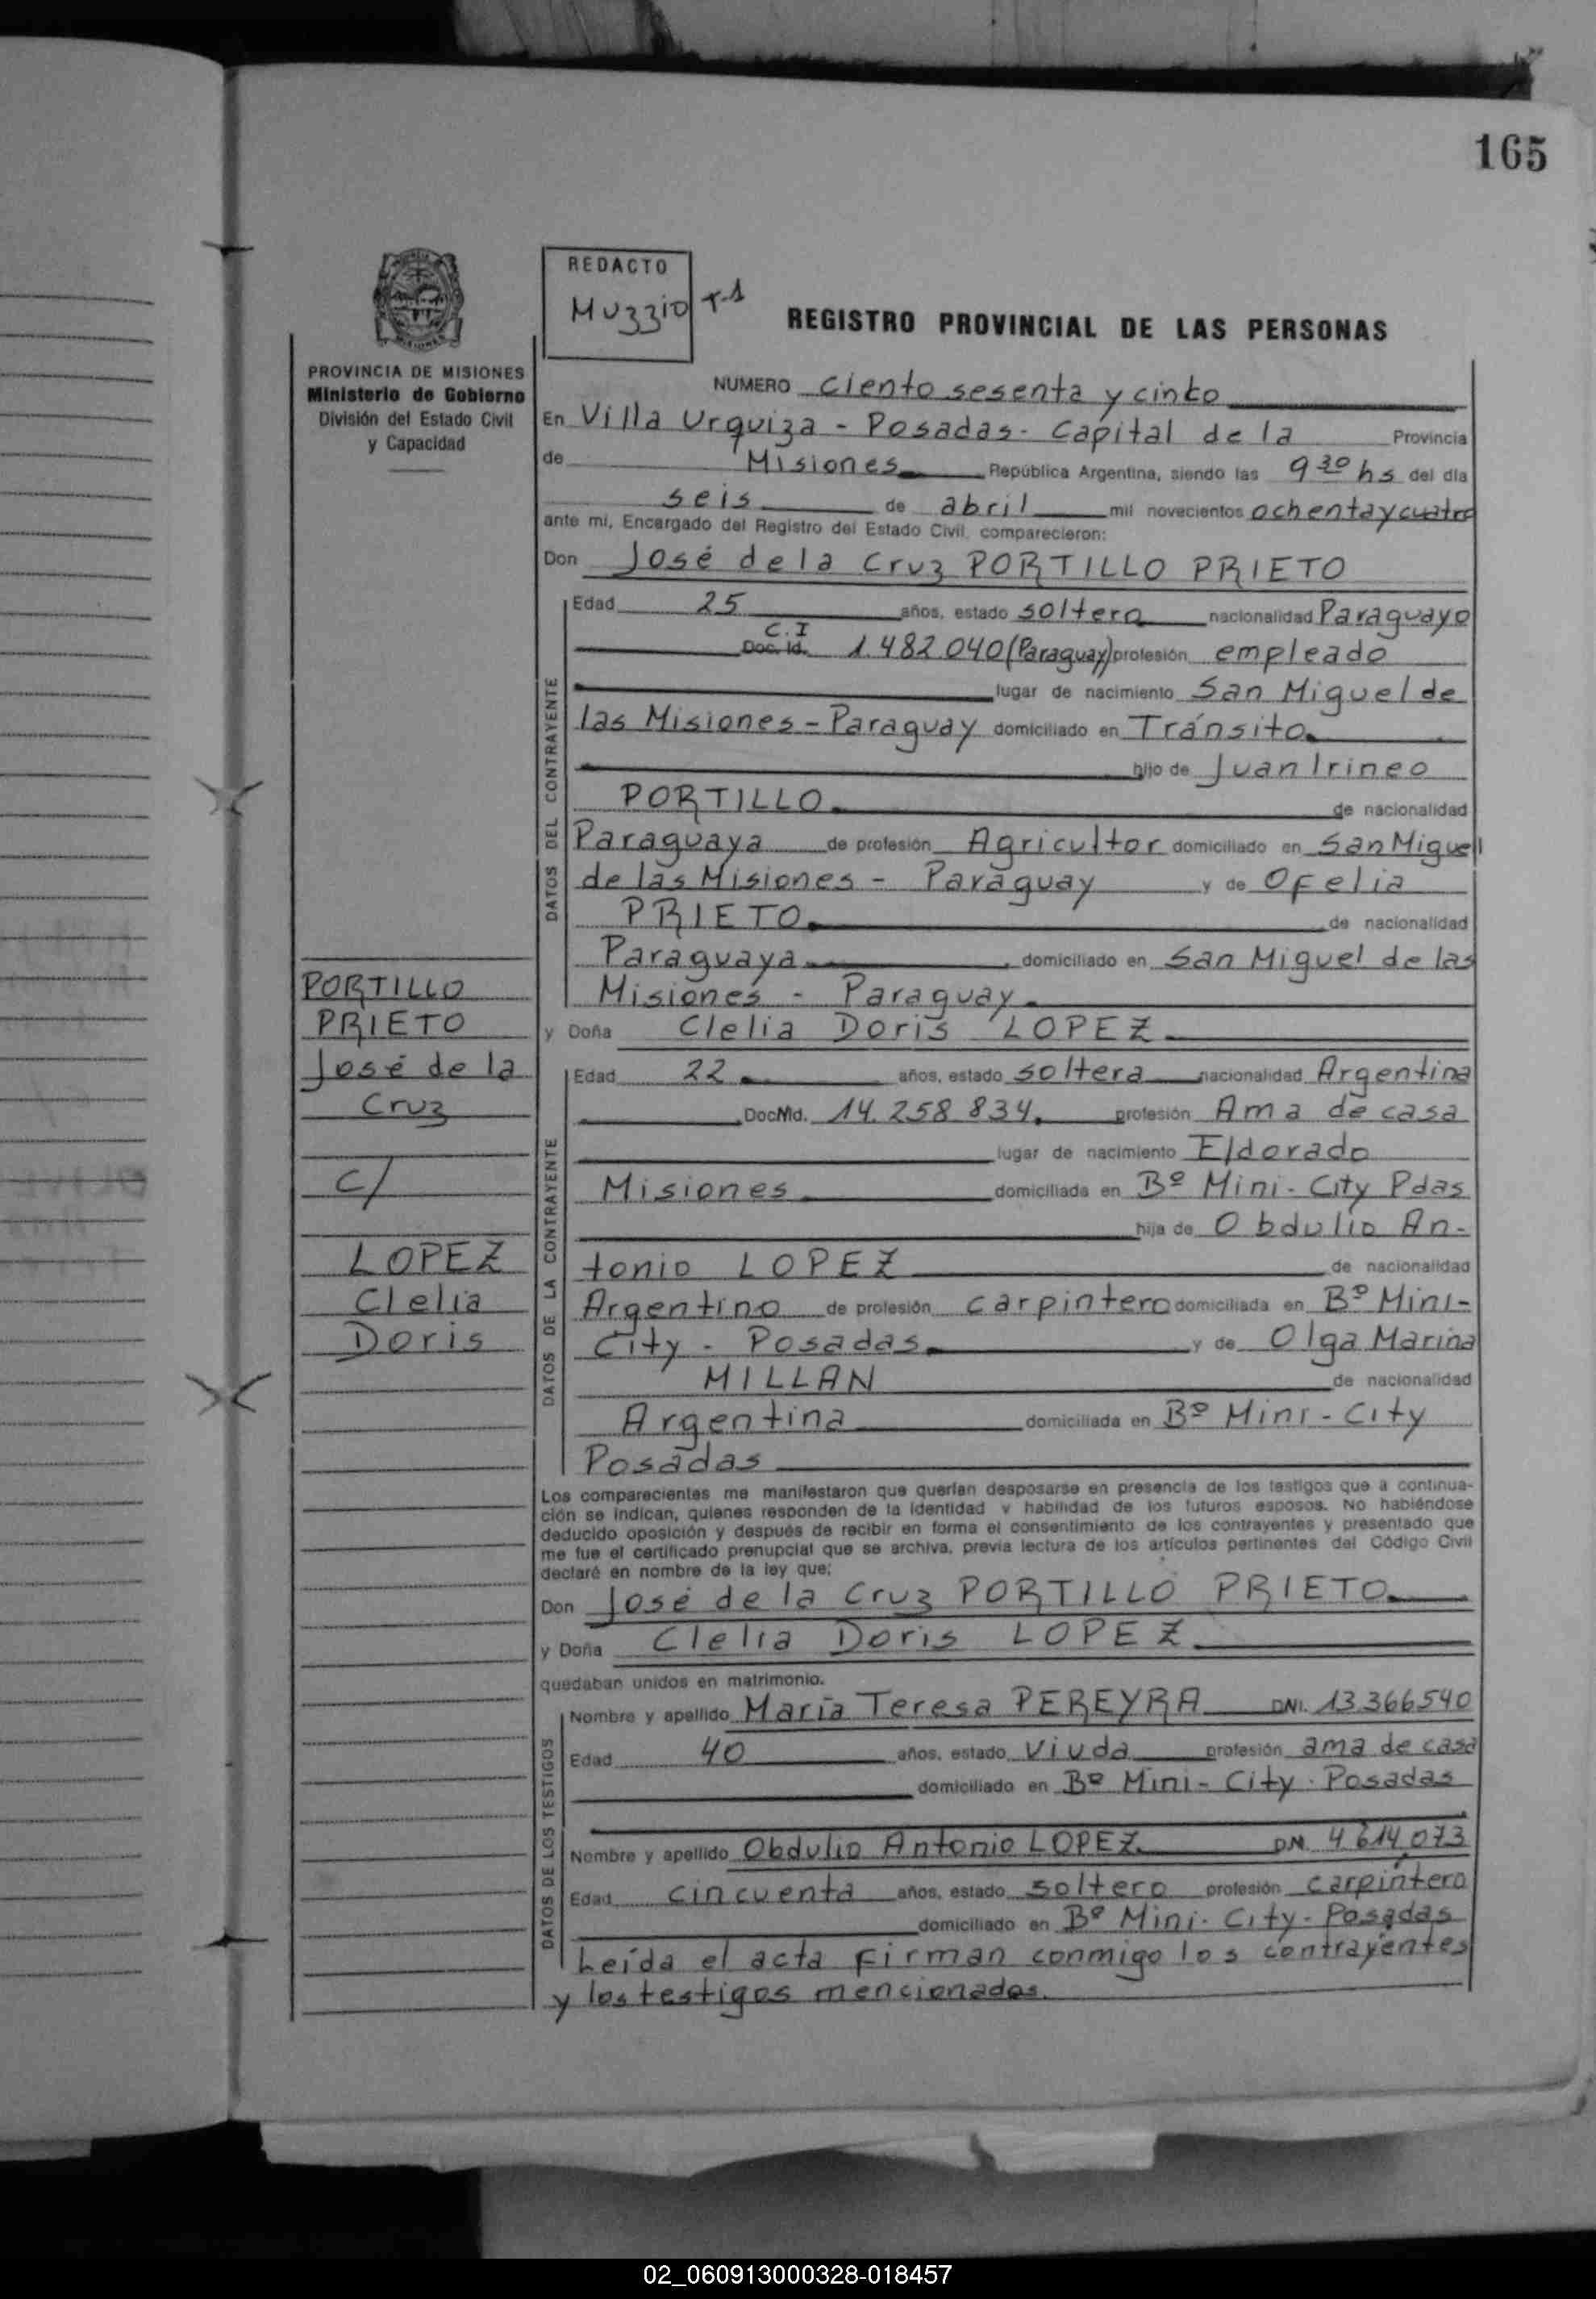 165
REDACTO
Muzzio T-1
REGISTRO PROVINCIAL DE LAS PERSONAS
PROVINCIA DE MISIONES
Ministerio de Gobierno
División del Estado Civil
y Capacidad
NUMERO Ciento sesenta y cinco
En Villa Urquiza - Posadas - Capital de la Provincia
de Misiones República Argentina, siendo las 9 30 hs del día
seis de abril mil novecientos ochenta y cuatro
ante mí, Encargado del Registro del Estado Civil, comparecieron:
Don José de la Cruz PORTILLO PRIETO
DATOS DEL CONTRAYENTE
Edad 25 años, estado soltero nacionalidad Paraguayo
C.I
Doc. Id. 1.482.040 (Paraguay) profesión empleado
lugar de nacimiento San Miguel de
las Misiones - Paraguay domiciliado en Tránsito.
hijo de Juan Irineo
PORTILLO. de nacionalidad
Paraguaya de profesión Agricultor domiciliado en San Miguel
de las Misiones - Paraguay y de Ofelia
PRIETO. de nacionalidad
Paraguaya domiciliado en San Miguel de las
Misiones - Paraguay.
PORTILLO
PRIETO
José de la
Cruz
c/
LOPEZ
Clelia
Doris
y Doña Clelia Doris LOPEZ
DATOS DE LA CONTRAYENTE
Edad 22 años, estado soltera nacionalidad Argentina
Doc. Id. 14.258.834. profesión Ama de casa
lugar de nacimiento Eldorado
Misiones domiciliada en Bº Mini-City Pdas
hija de Obdulio An-
tonio LOPEZ de nacionalidad
Argentino de profesión carpintero domiciliada en Bº Mini-
City - Posadas. y de Olga Marina
MILLAN de nacionalidad
Argentina domiciliada en Bº Mini-City
Posadas
Los comparecientes me manifestaron que querían desposarse en presencia de los testigos que a continua-
ción se indican, quienes responden de la identidad y habilidad de los futuros esposos. No habiéndose
deducido oposición y después de recibir en forma el consentimiento de los contrayentes y presentado que
me fue el certificado prenupcial que se archiva, previa lectura de los artículos pertinentes del Código Civil
declaré en nombre de la ley que:
Don José de la Cruz PORTILLO PRIETO.
y Doña Clelia Doris LOPEZ
quedaban unidos en matrimonio.
DATOS DE LOS TESTIGOS
Nombre y apellido María Teresa PEREYRA DNI. 13.366540
Edad 40 años, estado Viuda profesión ama de casa
domiciliado en Bº Mini-City - Posadas
Nombre y apellido Obdulio Antonio LOPEZ DNI. 4.614.073
Edad cincuenta años, estado soltero profesión carpintero
domiciliado en Bº Mini-City - Posadas
Leída el acta firman conmigo los contrayentes
y los testigos mencionados.
02_060913000328-018457